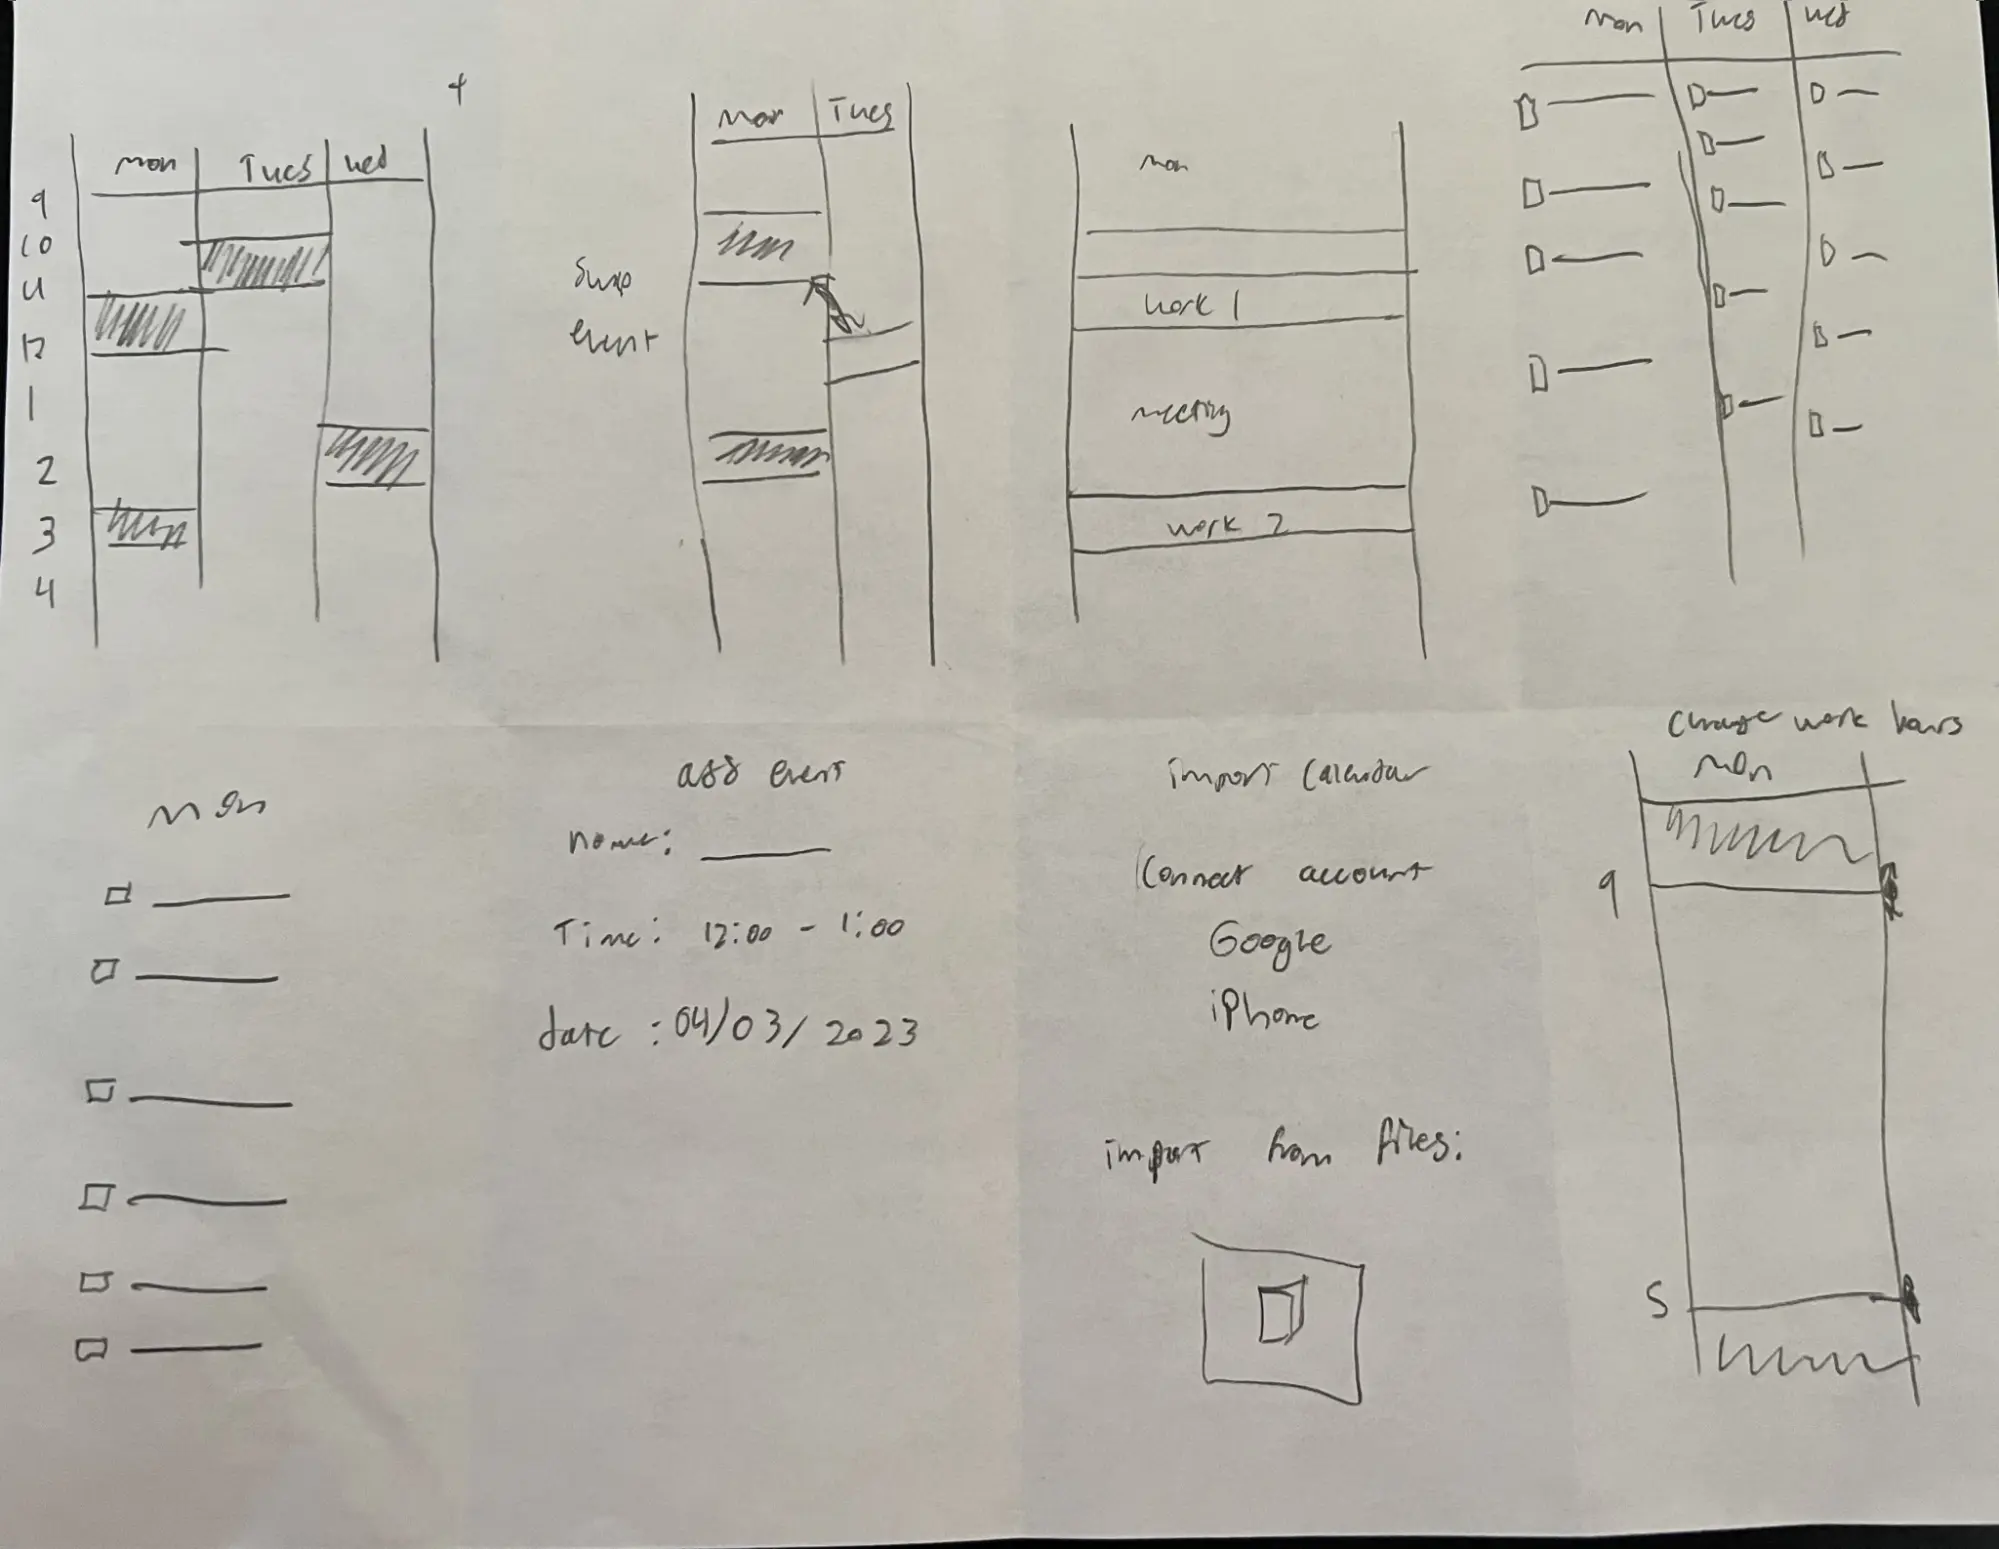 +
Mon Tues Wed
9
10
11
12
1
2
3
4
Mon Tues
Swap
event
Mon
work 1
meeting
work 2
Mon Tues Wed
Mon
add event
name:
Time: 12:00 - 1:00
date: 04/03/2023
import calendar
Connect account
Google
iPhone
import from files:
Change work hours
Mon
9
5